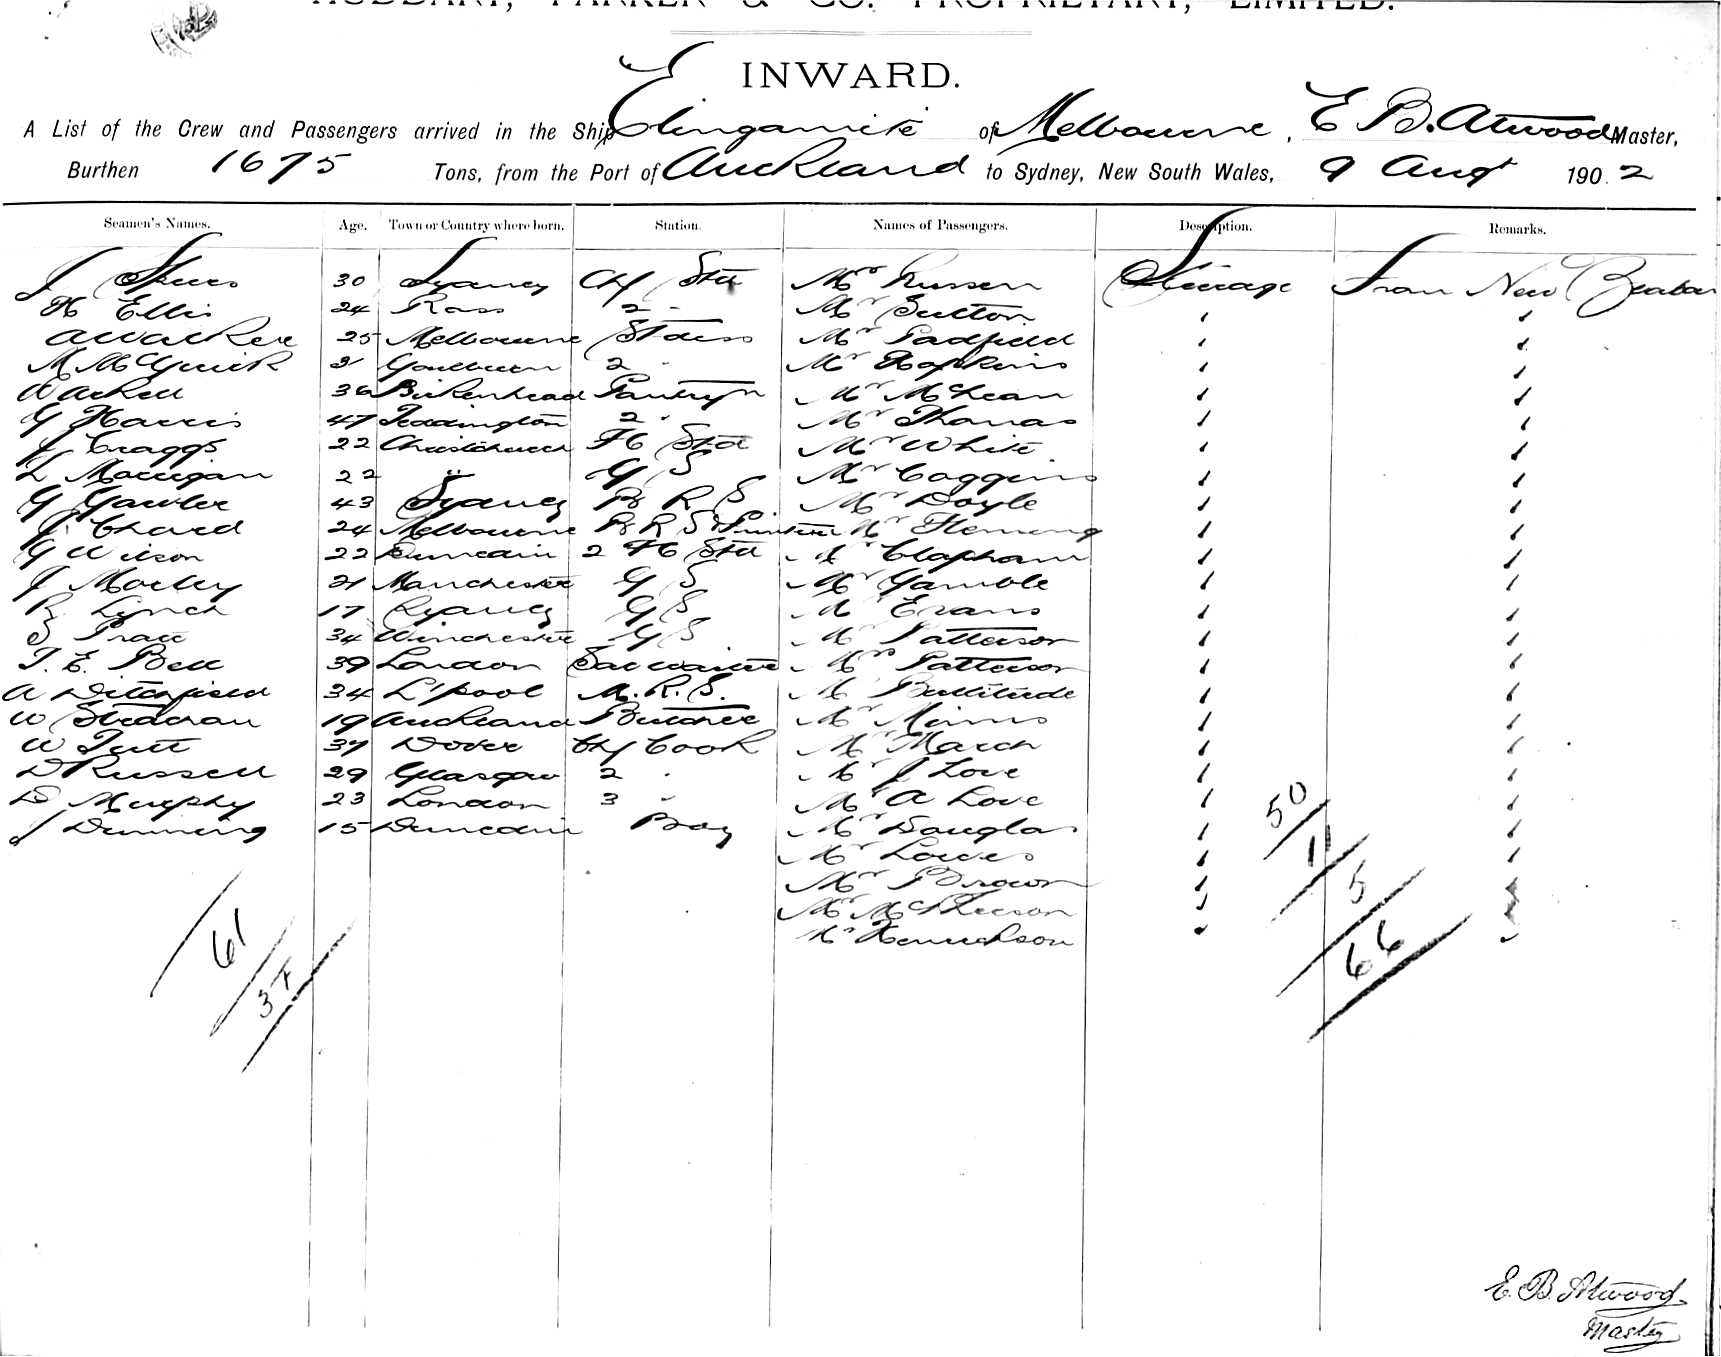 HUDDART, PARKER & CO. PROPRIETARY, LIMITED.
INWARD.
A List of the Crew and Passengers arrived in the Ship Elingamite of Melbourne, E B. Atwood Master,
Burthen 1675 Tons, from the Port of Auckland to Sydney, New South Wales, 9 Augt 1902
Seamen's Names. Age. Town or Country where born. Station. Names of Passengers. Description. Remarks.
J 30 Sydney Chf Std Mrs Russell Steerage From New Zealand
H Ellis 24 Ross 2 " Mr Sutton
A Walker 25 Melbourne Stdess Mr Padfield
M McGuirk Goulburn 2 " Mr Hopkins
W 36 Birkenhead Pantryn Mr McLean
G Harris 47 Teddington 2 " Mr Thomas
J Craggs 22 Christchurch FC Std Mr White
L 22 " G S Mr Coggins
G Gawler 43 Sydney B R S Mr Doyle
J Chard 24 Melbourne B R S & Mr Fleming
G Wilson 22 Dunedin 2 FC Std Mr Clapham
J Morley 21 Manchester G S Mr Gamble
R Lynch 17 Sydney G S Mr Evans
S Pratt 34 Winchester G S Mr Patterson
T. E. Bell 39 London Mrs Patterson
A Ditchfield 34 L'pool M. R. S. Mr Bullitude
W Strachan 19 Auckland Butcher Mr Minns
W Tutt 37 Dover Chf Cook Mr March
D Russell 29 Glasgow 2 " Mr J Love
D Murphy 23 London 3 " Mr A Love
J Dunning 15 Dunedin Boy Mr Douglas
Mr Lowes
Mr Brown
Mr McPherson
Mr Henrickson
50
11
5
66
61
37
E. B. Atwood
Master